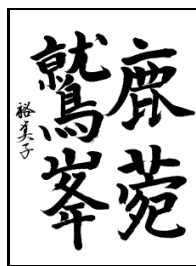 鹿菀
鷲峯
裕美子